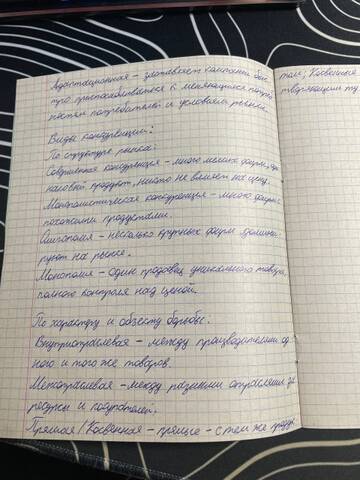 Адаптационная - заставляет компании быс
тро приспосабливаться к меняющимся потреб
ностям потребителей и условиям рынка.
Виды конкуренции:
По структуре рынка:
Совершенная конкуренция - много мелких фирм, оди
наковый продукт, никто не влияет на цену.
Монополистическая конкуренция - много фирм с
похожими продуктами.
Олигополия - несколько крупных фирм домини
руют на рынке.
Монополия - один продавец уникального товара,
полного контроля над ценой.
По характеру и объекту борьбы.
Внутриотраслевая - между производителями од
ного и того же товаров.
Межотраслевая - между разными отраслями за
ресурсы и покупателей.
Прямая/Косвенная - прямые - с тем же проду
том; Косвенная
творяющим ту